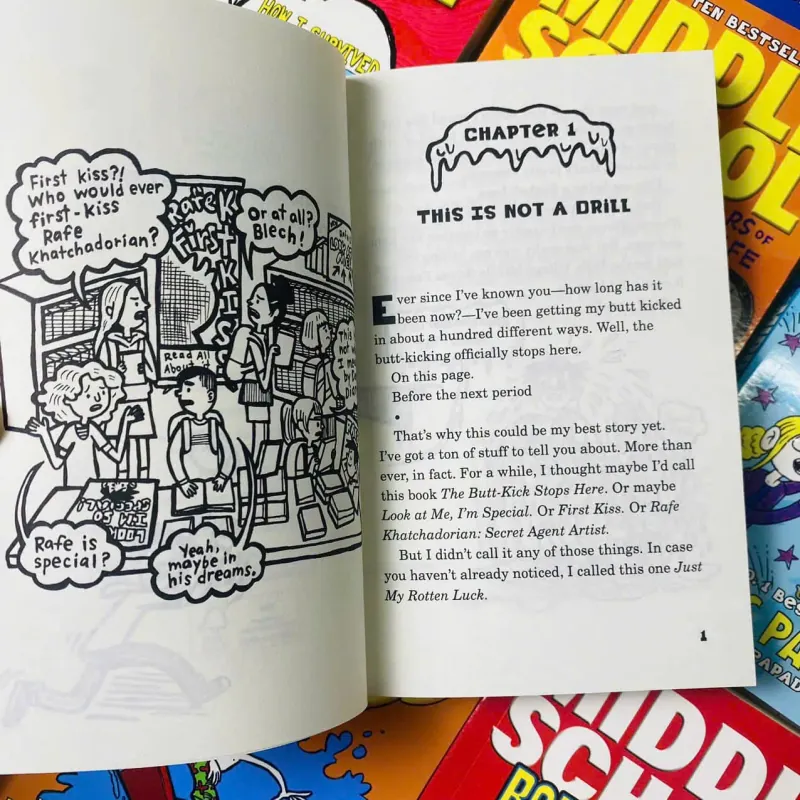 HOW I SURVIVED
TEN BESTSELL
MIDDL
First kiss?!
Who would ever
first-kiss
Rafe
Khatchadorian?
Or at all?
Blech!
Rafe
First
Read All
About it
LOOK
I'M SO
SPECIAL
Rafe is
special?
Yeah,
maybe in
his dreams.
CHAPTER 1
THIS IS NOT A DRILL
Ever since I've known you—how long has it
been now?—I've been getting my butt kicked
in about a hundred different ways. Well, the
butt-kicking officially stops here.
On this page.
Before the next period
•
That's why this could be my best story yet.
I've got a ton of stuff to tell you about. More than
ever, in fact. For a while, I thought maybe I'd call
this book The Butt-Kick Stops Here. Or maybe
Look at Me, I'm Special. Or First Kiss. Or Rafe
Khatchadorian: Secret Agent Artist.
But I didn't call it any of those things. In case
you haven't already noticed, I called this one Just
My Rotten Luck.
1
OL
RS OF
FE
PA
PAPAD
MIDDL
SCH